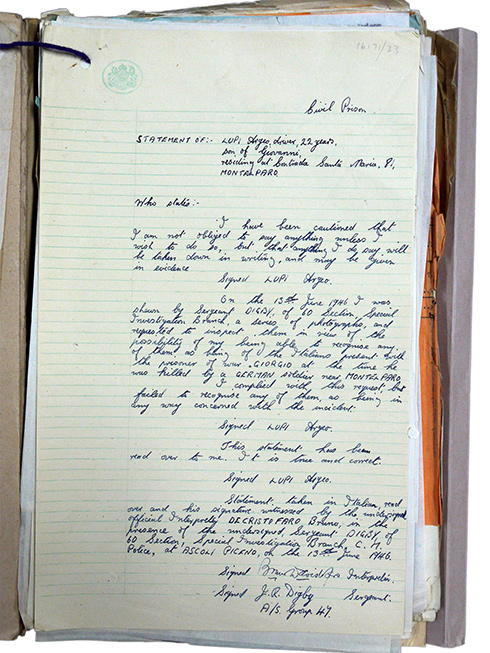 16171/33
Civil Prison.
STATEMENT OF:- LUPI Argeo, driver, 22 years,
son of Giovanni,
residing at Contrada Santa Maria, 81,
MONTELPARO
Who states:-
I have been cautioned that
I am not obliged to say anything unless I
wish to do so, but that anything I do say will
be taken down in writing, and may be given
in evidence
Signed LUPI Argeo.
On the 13th June 1946 I was
shown by Sergeant DIGBY, of 60 Section, Special
Investigation Branch, a series of photographs, and
requested to inspect them in view of the
possibility of my being able to recognise any
of them as being of the Italians present with
the prisoner of war GIORGIO at the time he
was killed by a GERMAN soldier near MONTELPARO.
I complied with this request, but
failed to recognise any of them, as being in
any way concerned with the incident.
Signed LUPI Argeo.
This statement has been
read over to me. It is true and correct.
Signed LUPI Argeo.
Statement taken in Italian, read
over and his signature witnessed by the undersigned
official Interpreter DECRISTOFARO, Bruno, in the
presence of the undersigned, Sergeant DIGBY, of
60 Section, Special Investigation Branch, C. M.
Police, at ASCOLI PICENO, on the 13th June 1946.
Signed Interpreter.
Signed J.A. Digby Sergeant.
A/S. Group 47.